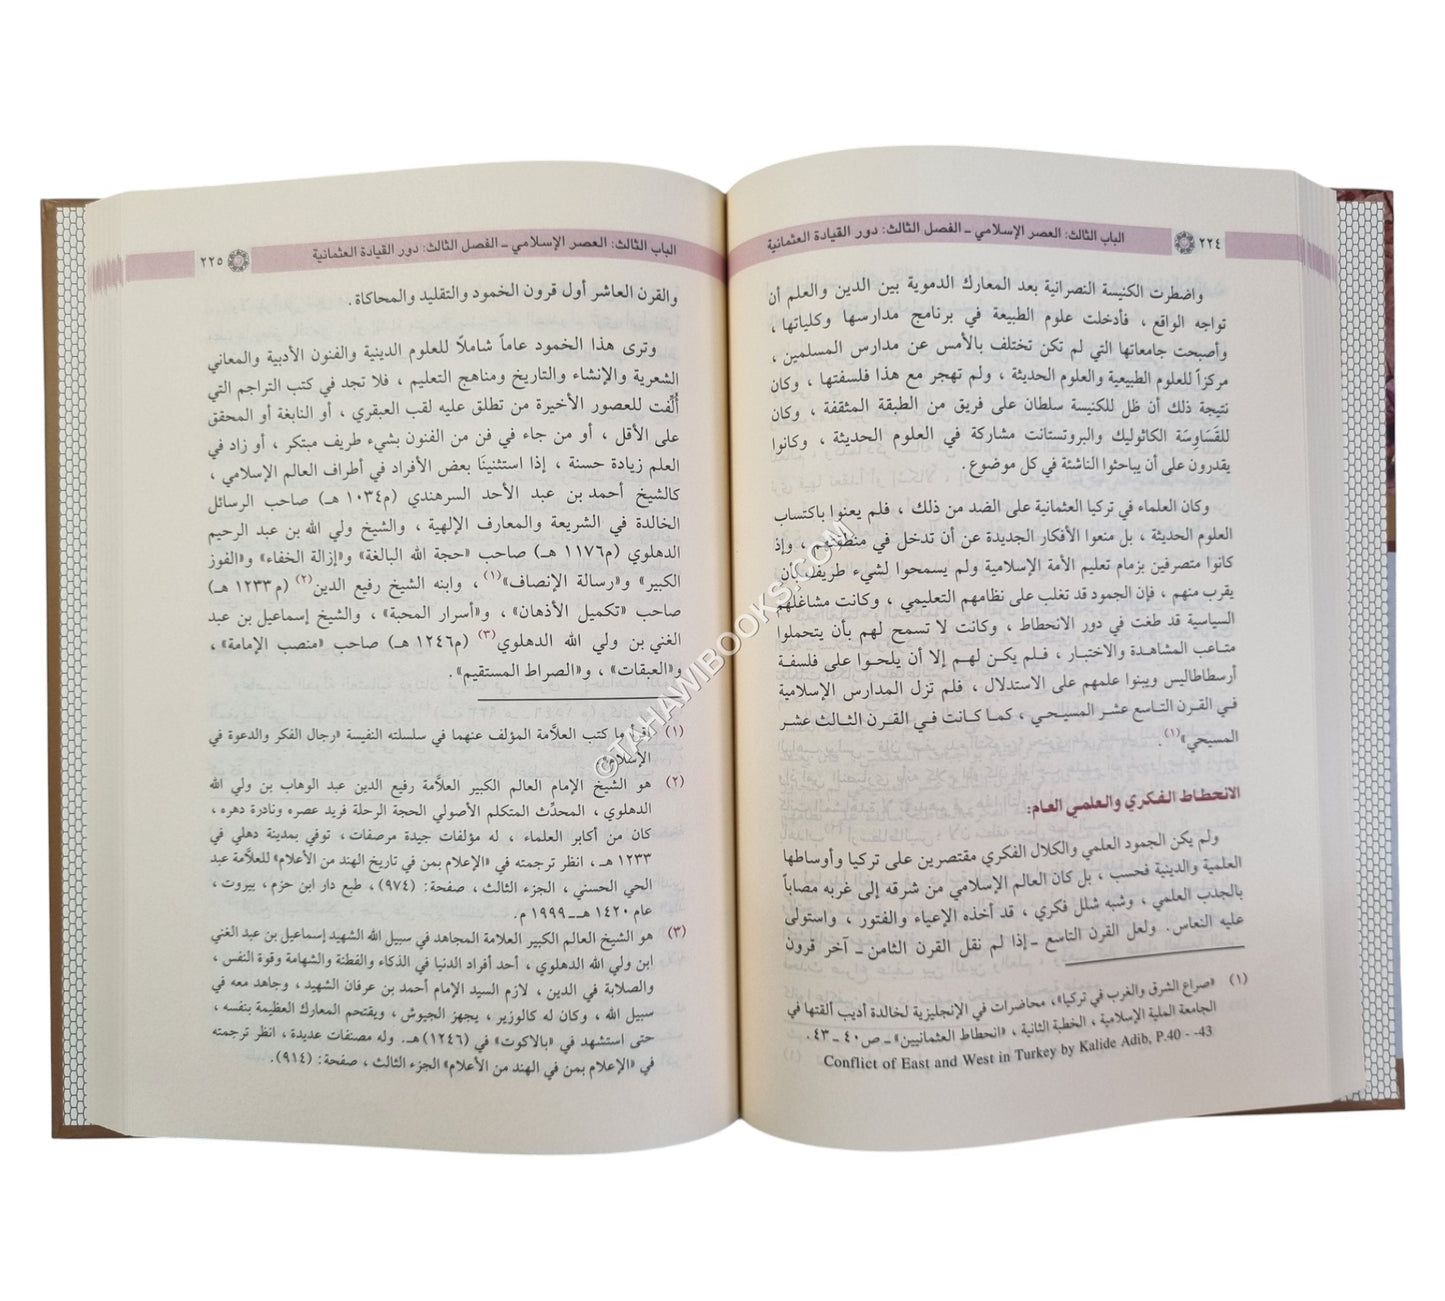 ٢٢٤ الباب الثالث: العصر الإسلامي ـ الفصل الثالث: دور القيادة العثمانية
واضطرت الكنيسة النصرانية بعد المعارك الدموية بين الدين والعلم أن
تواجه الواقع ، فأدخلت علوم الطبيعة في برنامج مدارسها وكلياتها ،
وأصبحت جامعاتها التي لم تكن تختلف بالأمس عن مدارس المسلمين ،
مركزاً للعلوم الطبيعية والعلوم الحديثة ، ولم تهجر مع هذا فلسفتها ، وكان
نتيجة ذلك أن ظل للكنيسة سلطان على فريق من الطبقة المثقفة ، وكان
للقَسَاوِسَة الكاثوليك والبروتستانت مشاركة في العلوم الحديثة ، وكانوا
يقدرون على أن يباحثوا الناشئة في كل موضوع.
وكان العلماء في تركيا العثمانية على الضد من ذلك ، فلم يعنوا باكتساب
العلوم الحديثة ، بل منعوا الأفكار الجديدة عن أن تدخل في منطقتهم ، وإذ
كانوا متصرفين بزمام تعليم الأمة الإسلامية ولم يسمحوا لشيء طريف بأن
يقرب منهم ، فإن الجمود قد تغلب على نظامهم التعليمي ، وكانت مشاغلهم
السياسية قد طغت في دور الانحطاط ، وكانت لا تسمح لهم بأن يتحملوا
متاعب المشاهدة والاختبار ، فلم يكن لهم إلا أن يلحوا على فلسفة
أرسطاطاليس ويبنوا علمهم على الاستدلال ، فلم تزل المدارس الإسلامية
في القرن التاسع عشر المسيحي ، كما كانت في القرن الثالث عشر
المسيحي»(١).
الانحطاط الفكري والعلمي العام:
ولم يكن الجمود العلمي والكلال الفكري مقتصرين على تركيا وأوساطها
العلمية والدينية فحسب ، بل كان العالم الإسلامي من شرقه إلى غربه مصاباً
بالجدب العلمي ، وشبه شلل فكري ، قد أخذه الإعياء والفتور ، واستولى
عليه النعاس. ولعل القرن التاسع ـ إذا لم نقل القرن الثامن ـ آخر قرون
(١) «صراع الشرق والغرب في تركيا»، محاضرات في الإنجليزية لخالدة أديب ألقتها في
الجامعة الملية الإسلامية ، الخطبة الثانية ، «انحطاط العثمانيين» ـ ص٤٠ ـ ٤٣.
Conflict of East and West in Turkey by Kalide Adib, P.40 - -43
الباب الثالث: العصر الإسلامي ـ الفصل الثالث: دور القيادة العثمانية ٢٢٥
والقرن العاشر أول قرون الخمود والتقليد والمحاكاة.
وترى هذا الخمود عاماً شاملاً للعلوم الدينية والفنون الأدبية والمعاني
الشعرية والإنشاء والتاريخ ومناهج التعليم ، فلا تجد في كتب التراجم التي
أُلِّفت للعصور الأخيرة من تطلق عليه لقب العبقري ، أو النابغة أو المحقق
على الأقل ، أو من جاء في فن من الفنون بشيء طريف مبتكر ، أو زاد في
العلم زيادة حسنة ، إذا استثنينَا بعض الأفراد في أطراف العالم الإسلامي ،
كالشيخ أحمد بن عبد الأحد السرهندي (م١٠٣٤ هـ) صاحب الرسائل
الخالدة في الشريعة والمعارف الإلهية ، والشيخ ولي الله بن عبد الرحيم
الدهلوي (م١١٧٦ هـ) صاحب «حجة الله البالغة» و«إزالة الخفاء» و«الفوز
الكبير» و«رسالة الإنصاف»(١) ، وابنه الشيخ رفيع الدين(٢) (م ١٢٣٣ هـ)
صاحب «تكميل الأذهان» ، و«أسرار المحبة» ، والشيخ إسماعيل بن عبد
الغني بن ولي الله الدهلوي(٣) (م١٢٤٦ هـ) صاحب «منصب الإمامة» ،
و«العبقات» ، و«الصراط المستقيم».
(١) اقرأ ما كتب العلاَّمة المؤلف عنهما في سلسلته النفيسة «رجال الفكر والدعوة في
الإسلام».
(٢) هو الشيخ الإمام العالم الكبير العلاَّمة رفيع الدين عبد الوهاب بن ولي الله
الدهلوي ، المحدِّث المتكلم الأصولي الحجة الرحلة فريد عصره ونادرة دهره ،
كان من أكابر العلماء ، له مؤلفات جيدة مرصفات ، توفي بمدينة دهلي في
١٢٣٣ هـ ، انظر ترجمته في «الإعلام بمن في تاريخ الهند من الأعلام» للعلاَّمة عبد
الحي الحسني ، الجزء الثالث ، صفحة: (٩٧٤) ، طبع دار ابن حزم ، بيروت ،
عام ١٤٢٠ هـ ـ ١٩٩٩ م.
(٣) هو الشيخ العالم الكبير العلامة المجاهد في سبيل الله الشهيد إسماعيل بن عبد الغني
ابن ولي الله الدهلوي ، أحد أفراد الدنيا في الذكاء والفطنة والشهامة وقوة النفس ،
والصلابة في الدين ، لازم السيد الإمام أحمد بن عرفان الشهيد ، وجاهد معه في
سبيل الله ، وكان له كالوزير ، يجهز الجيوش ، ويقتحم المعارك العظيمة بنفسه ،
حتى استشهد في «بالاكوت» في (١٢٤٦) هـ. وله مصنفات عديدة ، انظر ترجمته
في «الإعلام بمن في الهند من الأعلام» الجزء الثالث ، صفحة: (٩١٤).
©TAHAWIBOOKS.COM